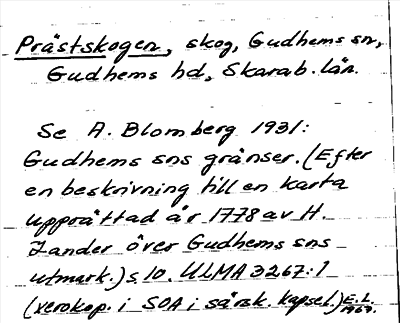 Prästskogen, skog, Gudhems sn,
Gudhems hd, Skarab. län.
Se A. Blomberg 1931:
Gudhems sns gränser. (Efter
en beskrivning till en karta
upprättad år 1778 av H.
Zander över Gudhems sns
utmark.) s. 10. ULMA 3267:1
(xerokop. i SOA i särsk. kapsel.) E.L. 1967.